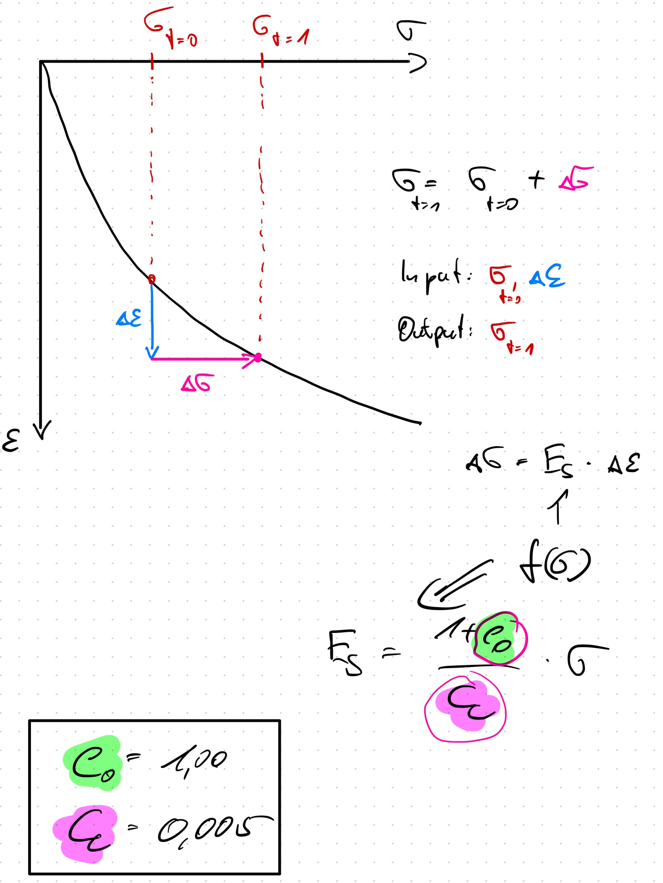 σ t=0 σ t=1 σ
σ t=1 = σ t=0 + Δσ
Input: σ t=0, Δε
Output: σ t=1
Δε
Δσ
ε
Δσ = E_s · Δε
↑
f(σ)
E_s = (1+e_0)/C_c · σ
e_0 = 1,00
C_c = 0,005